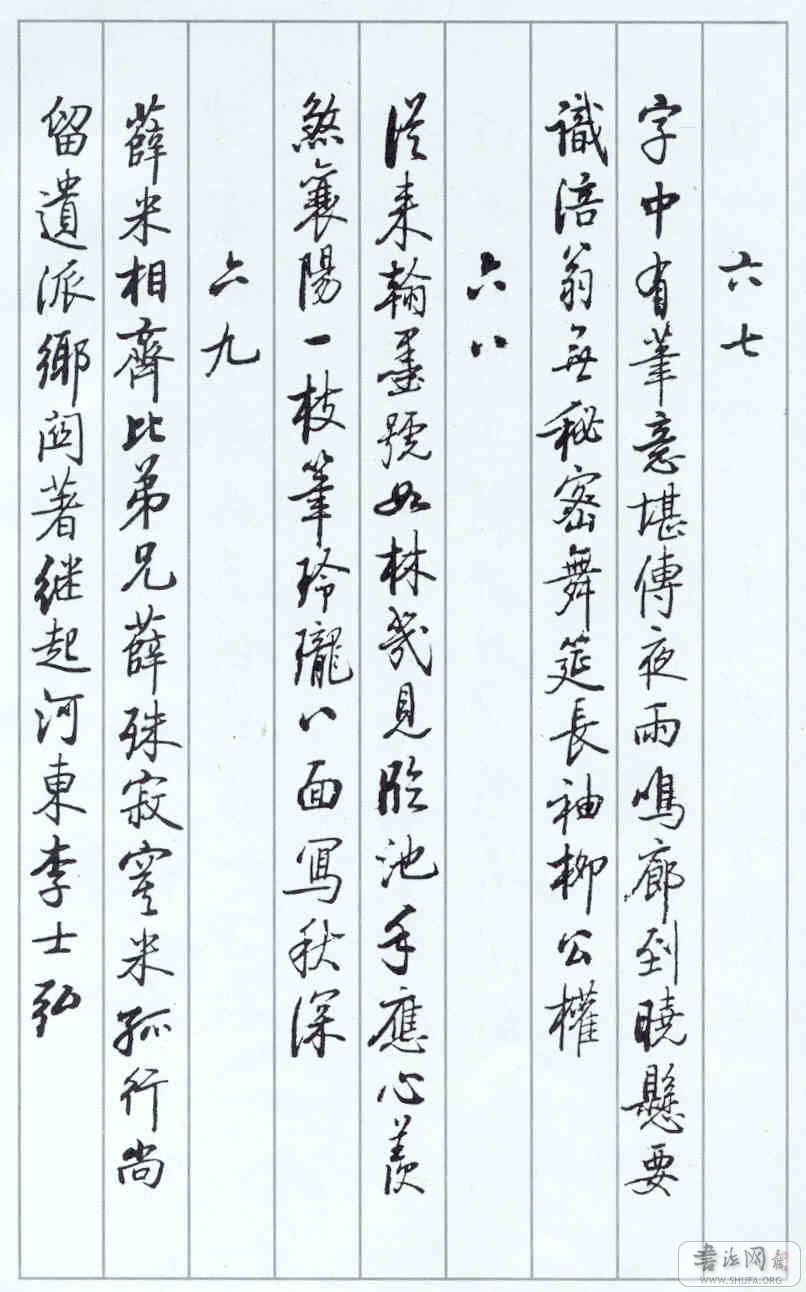 六七
字中有筆意堪傳夜雨鳴廊到曉懸要
識涪翁無秘密舞筵長袖柳公權
六八
從来翰墨號如林幾見臨池手應心羨
煞襄陽一枝筆玲瓏八面寫秋深
六九
薛米相齊比弟兄薛殊寂寞米孤行尚
留遺派鄉閭著继起河東李士弘
書法网
WWW.SHUFA.ORG